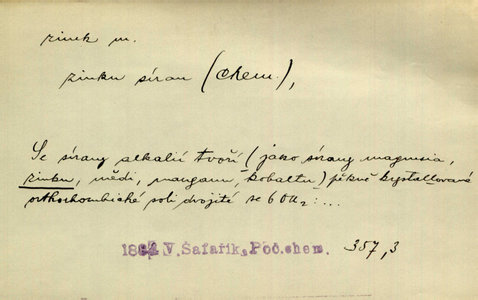 zinek m.
zinku síran (Chem.),
Se sírany alkalií tvoří (jako sírany magnesia,
zinku, mědi, manganu, kobaltu) pěkně krystallované
orthorhombické soli dvojité se 6 OH₂:...
V. Šafařík, Poč.chem. 357,3